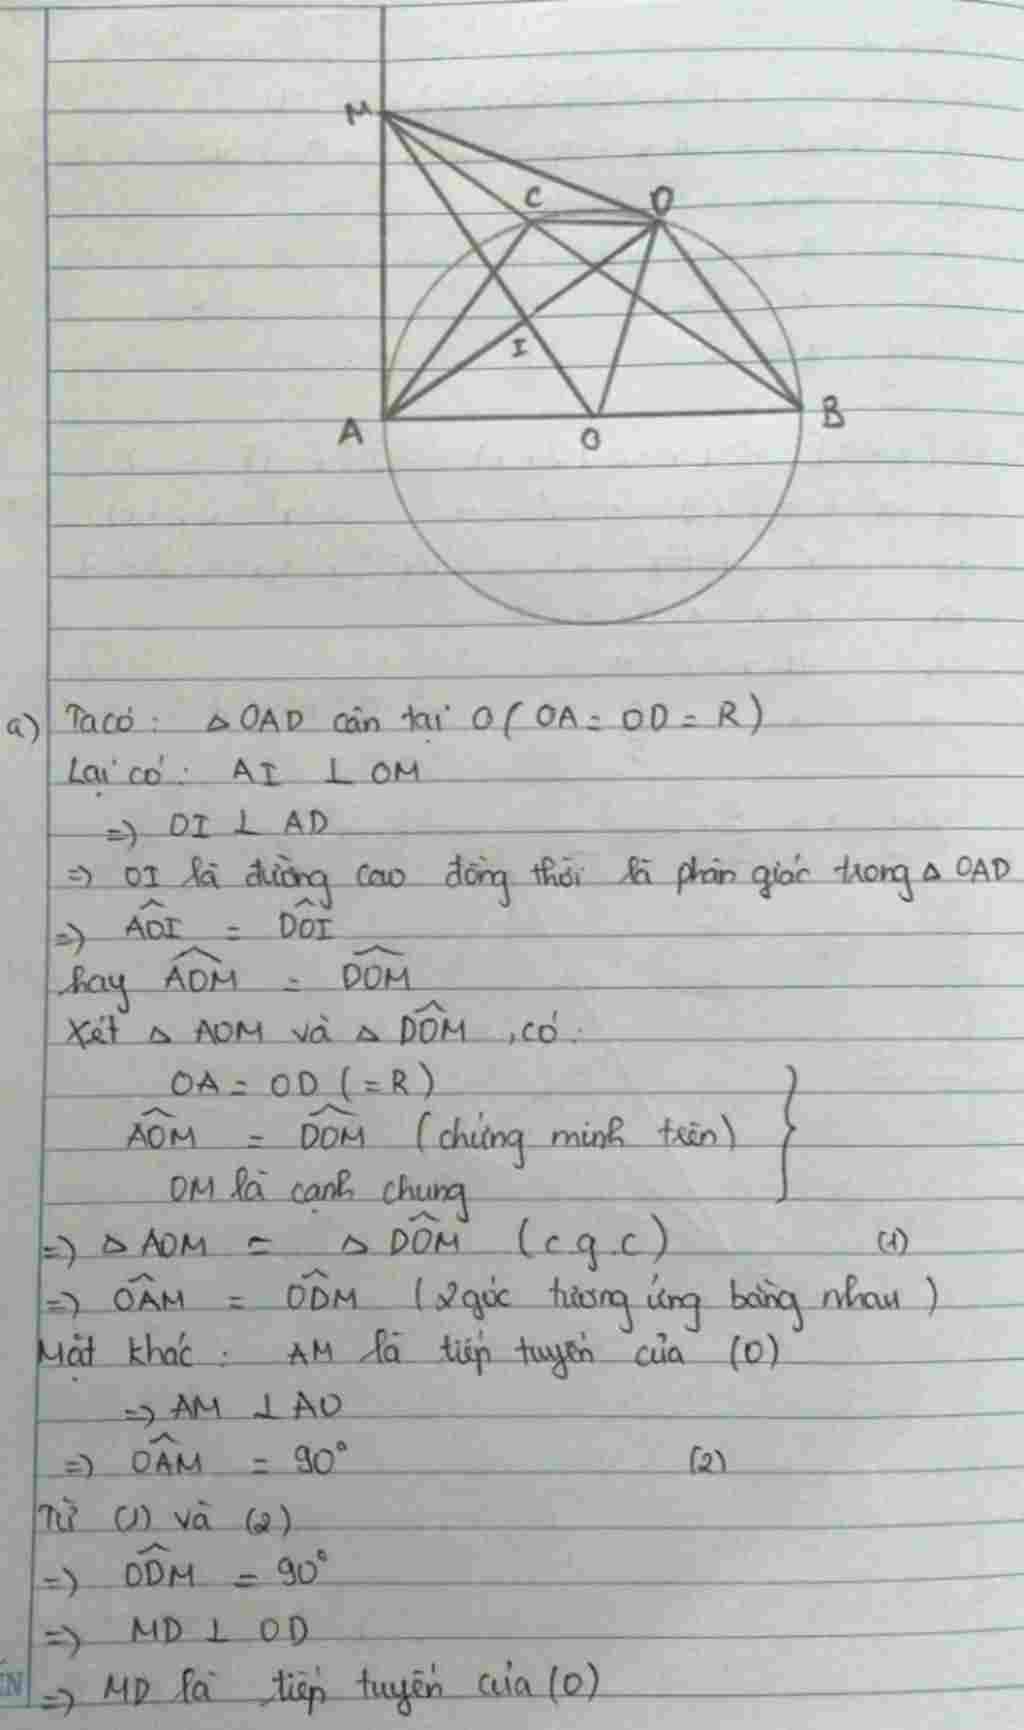 M
C
D
I
A
O
B
a) Ta có: △OAD cân tại O (OA = OD = R)
Lại có: AI ⊥ OM
=> OI ⊥ AD
=> OI là đường cao đồng thời là phân giác trong △ OAD
=> \widehat{AOI} = \widehat{DOI}
hay \widehat{AOM} = \widehat{DOM}
Xét △ AOM và △ \widehat{DOM}, có:
OA = OD (=R)
\widehat{AOM} = \widehat{DOM} (chứng minh trên)
OM là cạnh chung
=> △ AOM = △ \widehat{DOM} (c.g.c) (1)
=> \widehat{OAM} = \widehat{ODM} (2 góc tương ứng bằng nhau)
Mặt khác: AM là tiếp tuyến của (O)
=> AM ⊥ AO
=> \widehat{OAM} = 90° (2)
Từ (1) và (2)
=> \widehat{ODM} = 90°
=> MD ⊥ OD
=> MD là tiếp tuyến của (O)